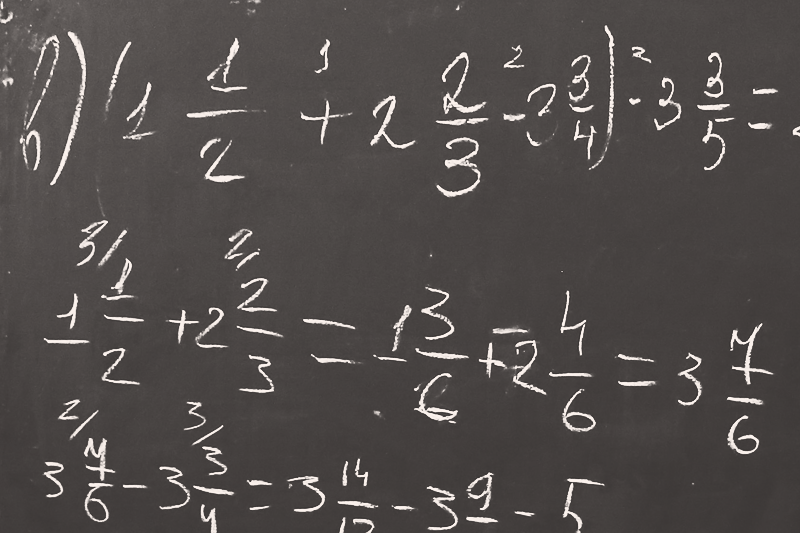 в) (1 1/2 + 2 2/3 - 3 3/4) · 3 3/5 =
1 1/2 + 2 2/3 = 1 3/6 + 2 4/6 = 3 7/6
3 7/6 - 3 3/4 = 3 14/12 - 3 9 - 5